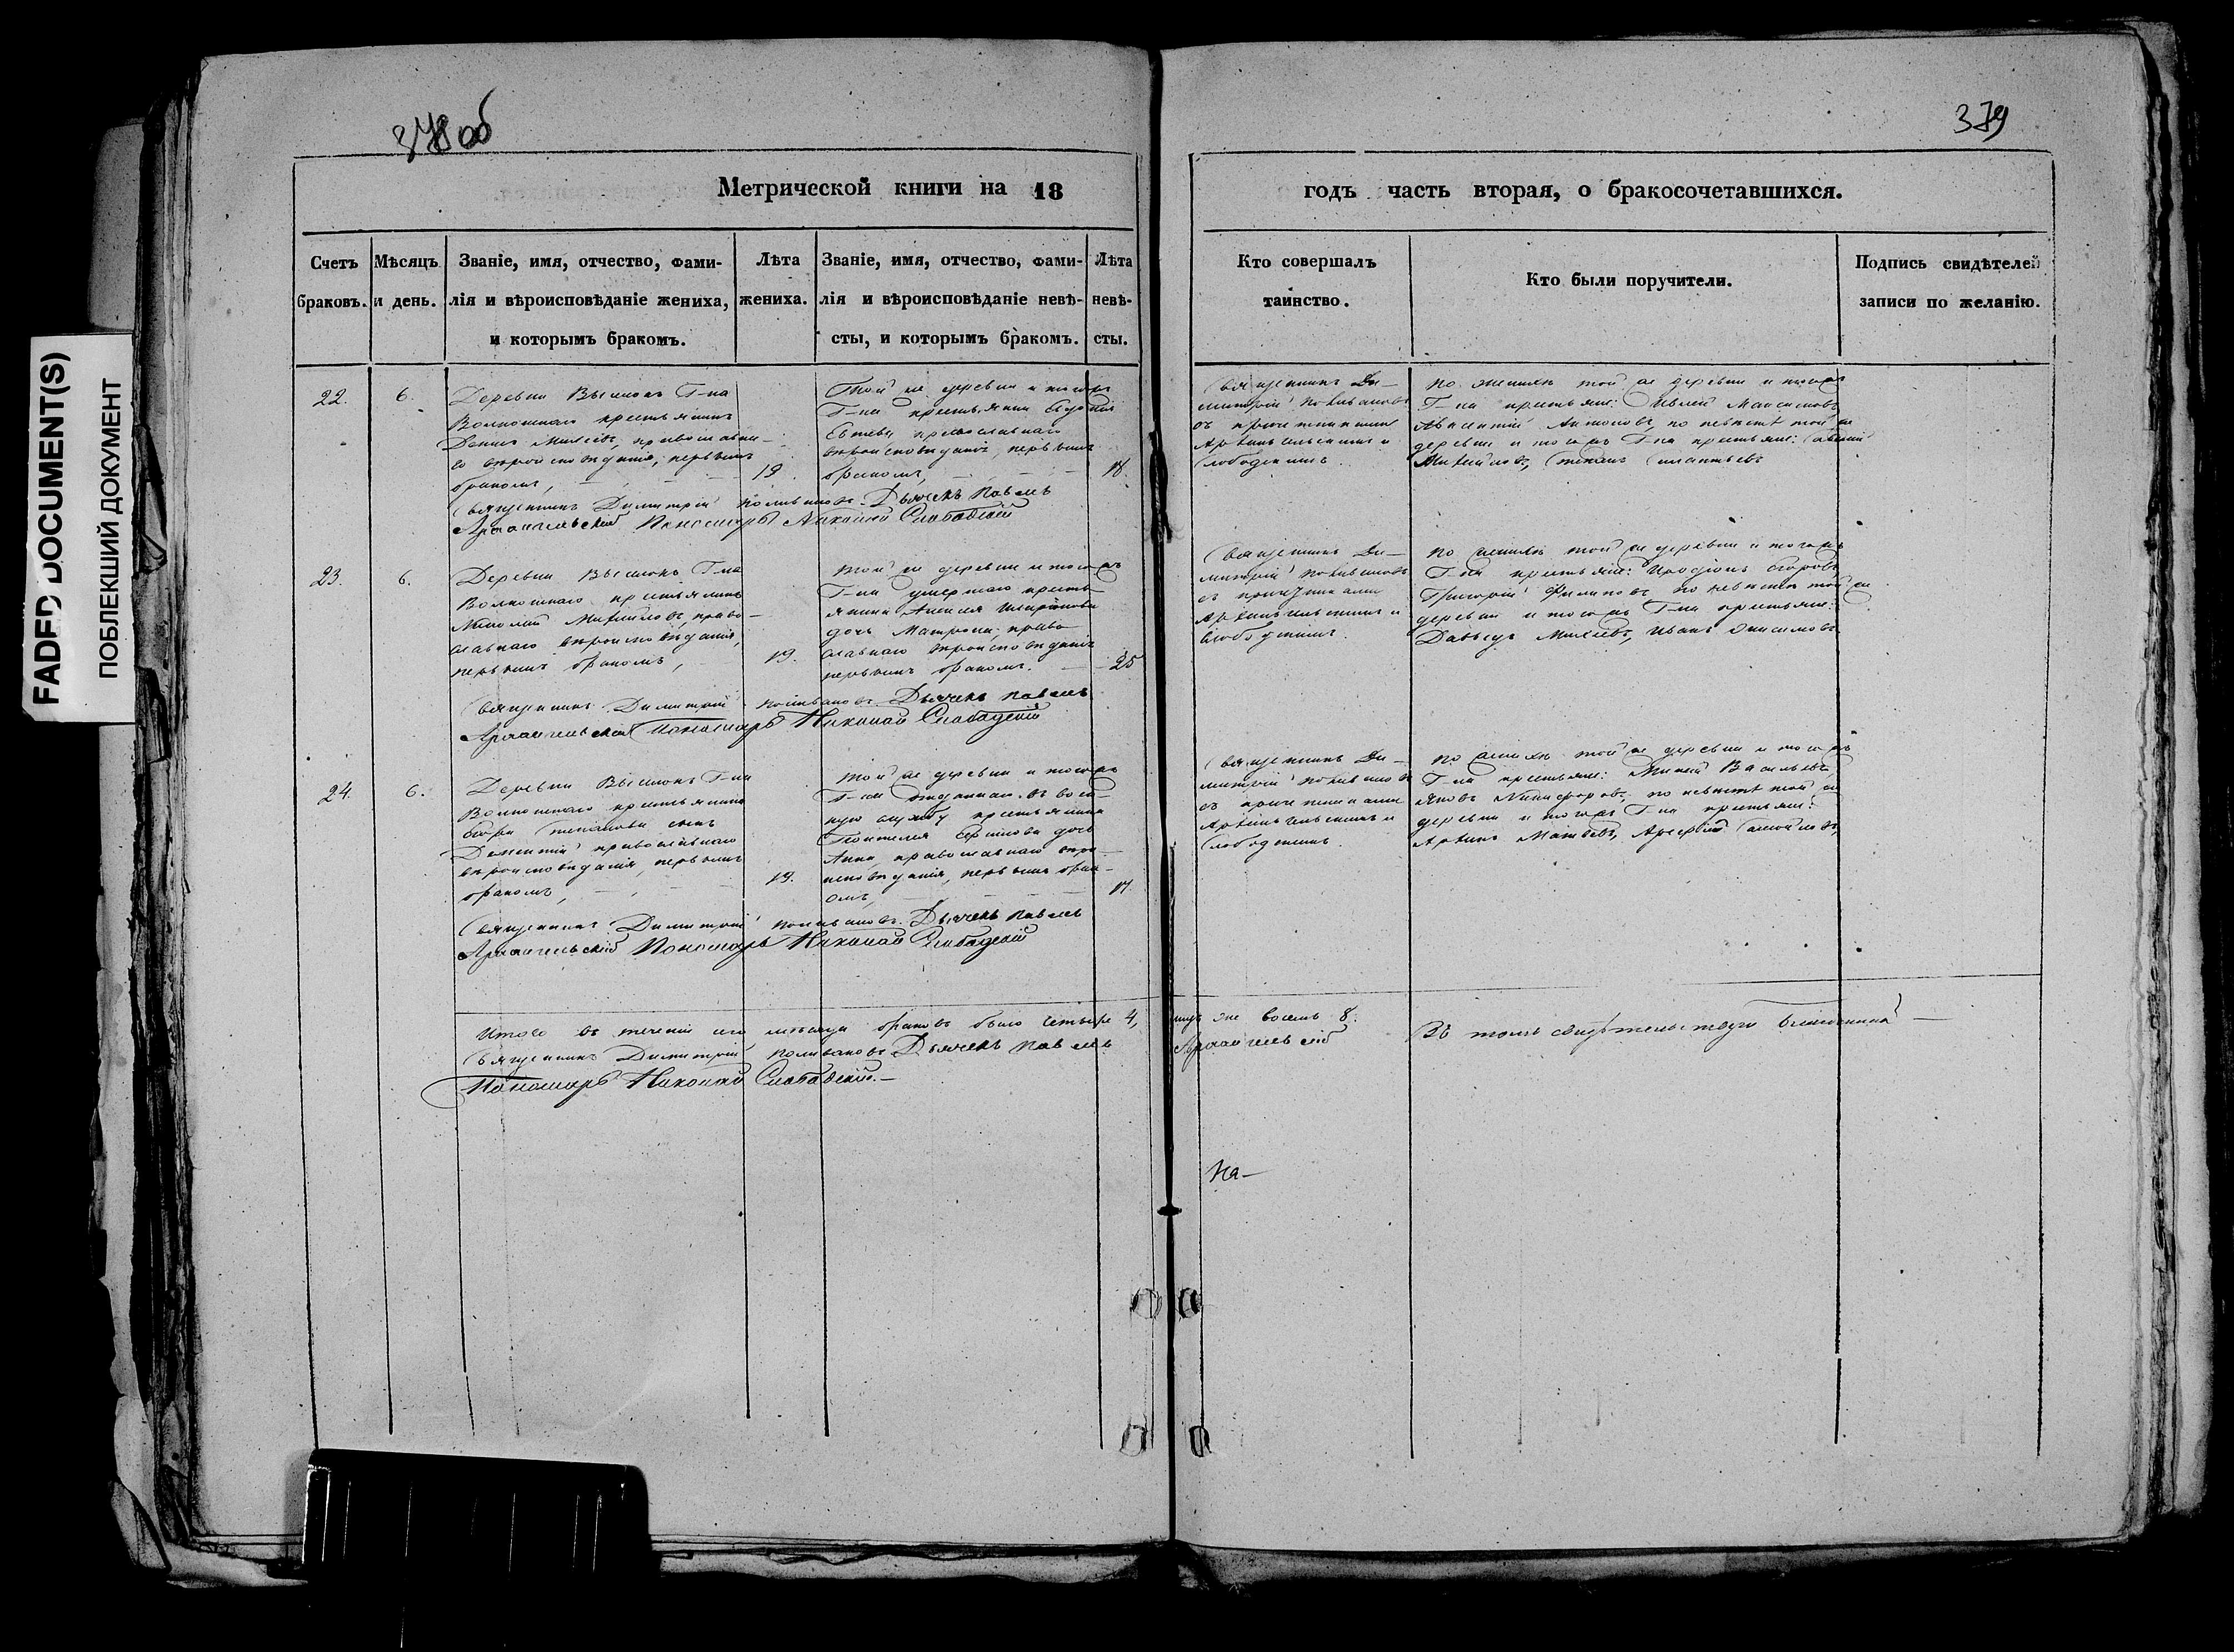 FADED DOCUMENT(S)
ПОБЛЕКШИЙ ДОКУМЕНТ
378 об
379
Метрической книги на 18 годъ часть вторая, о бракосочетавшихся.
Счетъ браковъ.
Мѣсяцъ и день.
Званіе, имя, отчество, фами-
лія и вѣроисповѣданіе жениха,
и которымъ бракомъ.
Лѣта
жениха.
Званіе, имя, отчество, фами-
лія и вѣроисповѣданіе невѣ-
сты, и которымъ бракомъ.
Лѣта
невѣ-
сты.
Кто совершалъ
таинство.
Кто были поручители.
Подпись свидѣтелей
записи по желанію.
22.
6.
Деревни Выселокъ Г-на
крестьянинъ
Михеевъ, православна-
го вѣроисповѣданія, первымъ
бракомъ,
19
Той же деревни и тогожъ
Г-на крестьянина
православнаго
вѣроисповѣданія, первымъ
бракомъ,
18.
Священникъ Ди-
митрій Поливановъ
съ причетниками
Архангельскимъ и
Слободскимъ.
По женихѣ той же деревни и тогожъ
Г-на крестьяне: Максимовъ,
Антоновъ, по невѣстѣ той же
деревни и тогожъ Г-на крестьяне:
Михайловъ, Степанъ
Священникъ Димитрій Поливановъ. Дьячекъ Павелъ
Архангельскій Пономарь Николай Слободской
23.
6.
Деревни Выселокъ Г-на
крестьянинъ
Николай Михайловъ, право-
славнаго вѣроисповѣданія,
первымъ бракомъ,
19.
Той же деревни и тогожъ
Г-на умершаго кресть-
янина Алексея
дочь Матрона, право-
славнаго вѣроисповѣданія
первымъ бракомъ.
25
Священникъ Ди-
митрій Поливановъ
съ причетниками
Архангельскимъ и
Слободскимъ.
По женихѣ той же деревни и тогожъ
Г-на крестьяне: Иродіонъ Егоровъ,
Григорій Филиповъ по невѣстѣ той же
деревни и тогожъ Г-на крестьяне:
Давыдъ Михеевъ, Иванъ Онисимовъ.
Священникъ Димитрій Поливановъ Дьячекъ Павелъ
Архангельскій Пономарь Николай Слободской
24.
6.
Деревни Выселокъ Г-на
крестьянина
Степанова сынъ
Дементій православнаго
вѣроисповѣданія, первымъ
бракомъ,
19.
Той же деревни и тогожъ
Г-на отданнаго въ воен-
ную службу крестьянина
дочь
Анна, православнаго вѣро-
исповѣданія, первымъ брак-
омъ,
17.
Священникъ Ди-
митрій Поливановъ
съ причетниками
Архангельскимъ и
Слободскимъ.
По женихѣ той же деревни и тогожъ
Г-на крестьяне: Васильевъ,
Яковъ Никифоровъ, по невѣстѣ той же
деревни и тогожъ Г-на крестьяне:
Архипъ Матвеевъ, Самойловъ,
Священникъ Димитрій Поливановъ. Дьячекъ Павелъ
Архангельскій Пономарь Николай Слободской
Итого въ теченіи сего мѣсяца браковъ было четыре 4, лицъ же восемь 8.
Священникъ Димитрій Поливановъ Дьячекъ Павелъ Архангельскій
Пономарь Николай Слободской.—
Въ томъ свидѣтельствую
На—